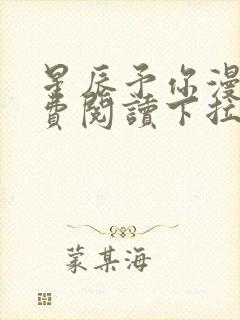 星辰予你漫
費閱讀下拉
蒙某海